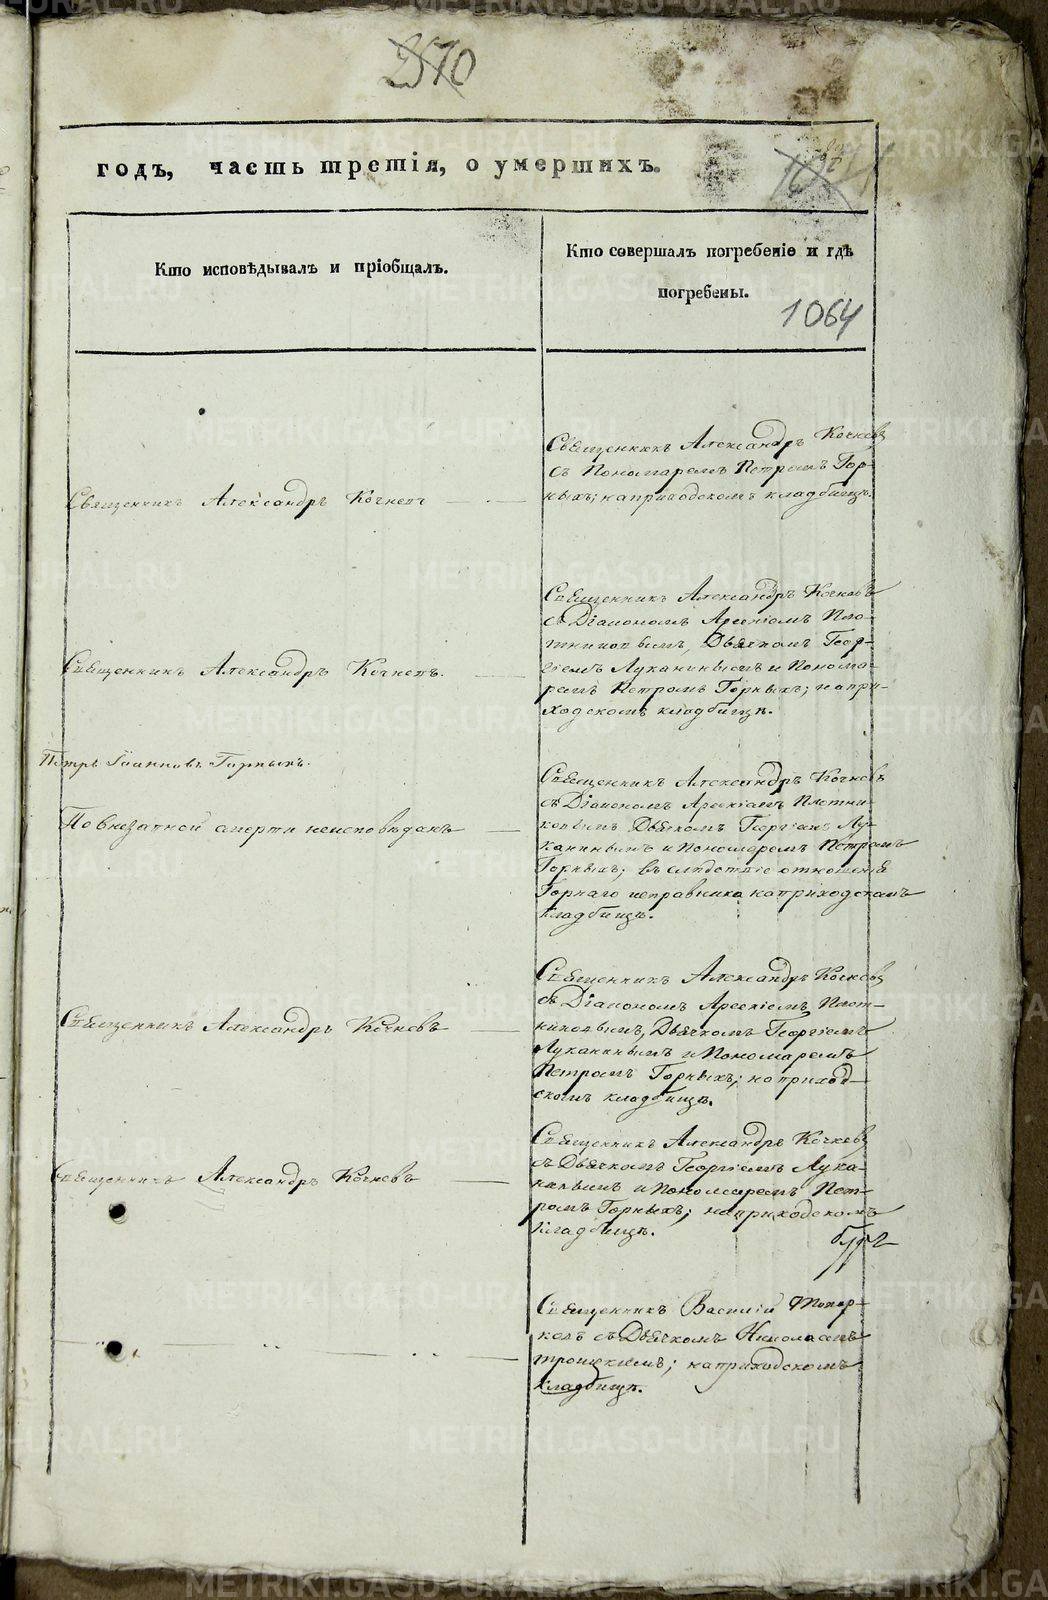 2570
годъ, часть третія, о умершихъ.
Кто исповѣдывалъ и пріобщалъ.
Кто совершалъ погребеніе и гдѣ
погребены.
1064
Священникъ Александръ Кочневъ
съ Пономаремъ Петромъ Гор-
ныхъ; на приходскомъ кладбищѣ.
Священникъ Александръ Кочневъ
Священникъ Александръ Кочневъ
съ Діакономъ Арсеніемъ Пло-
тниковымъ, Дьячкомъ Геор-
гіемъ Луканинымъ и Понома-
ремъ Петромъ Горныхъ; на при-
ходскомъ кладбищѣ.
Священникъ Александръ Кочневъ.
Петръ Іоанновъ Горныхъ.
Священникъ Александръ Кочневъ
съ Діакономъ Арсеніемъ Плотни-
ковымъ Дьячкомъ Георгіемъ Лу-
канинымъ и Пономаремъ Петромъ
Горныхъ; въ слѣдствіе отношенія
Горнаго исправника на приходскомъ
кладбищѣ.
По внезапной смерти неисповѣданъ
Священникъ Александръ Кочневъ
съ Діакономъ Арсеніемъ Плот-
никовымъ, Дьячкомъ Георгіемъ
Луканинымъ и Пономаремъ
Петромъ Горныхъ; на приход-
скомъ кладбищѣ.
Священникъ Александръ Кочневъ
Священникъ Александръ Кочневъ
съ Дьячкомъ Георгіемъ Лука-
нинымъ и Пономаремъ Пет-
ромъ Горныхъ; на приходскомъ
кладбищѣ.
Священникъ Александръ Кочневъ
Священникъ Василій
съ Дьячкомъ Николаемъ
Троицкимъ; на приходскомъ
кладбищѣ.
METRIKI.GASO-URAL.RU